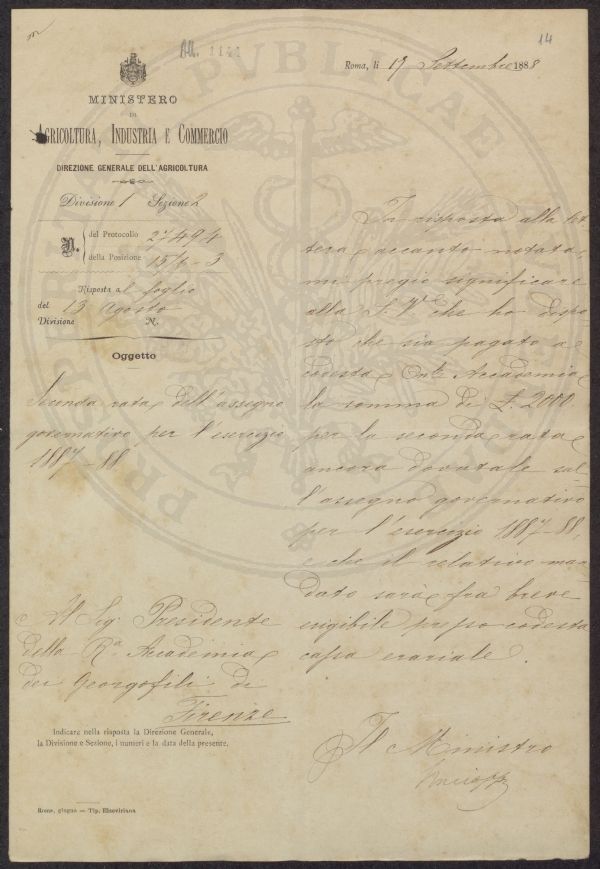 14
All. 1141
Roma, li 17 Settembre 1888
MINISTERO
DI
AGRICOLTURA, INDUSTRIA E COMMERCIO
DIREZIONE GENERALE DELL'AGRICOLTURA
Divisione 1 Sezione 2
N. del Protocollo 27494
della Posizione 15/6-3
Risposta al foglio
del 13 Agosto
Divisione N.
Oggetto
Seconda rata dell'assegno
governativo per l'esercizio
1887-88
In risposta alla let
tera accanto notata,
mi pregio significare
alla S. V. che ho dispo
sto che sia pagato a
codesta On. Accademia
la somma di £. 2000
per la seconda rata
ancora dovutale sul
l'assegno governativo
per l'esercizio 1887-88,
e che il relativo man
dato sarà fra breve
esigibile presso codesta
cassa erariale.
Al Sig. Presidente
della Rª Accademia
dei Georgofili di
Firenze
Indicare nella risposta la Direzione Generale,
la Divisione e Sezione, i numeri e la data della presente.
Il Ministro
Rome, giugno — Tip. Elzeviriana